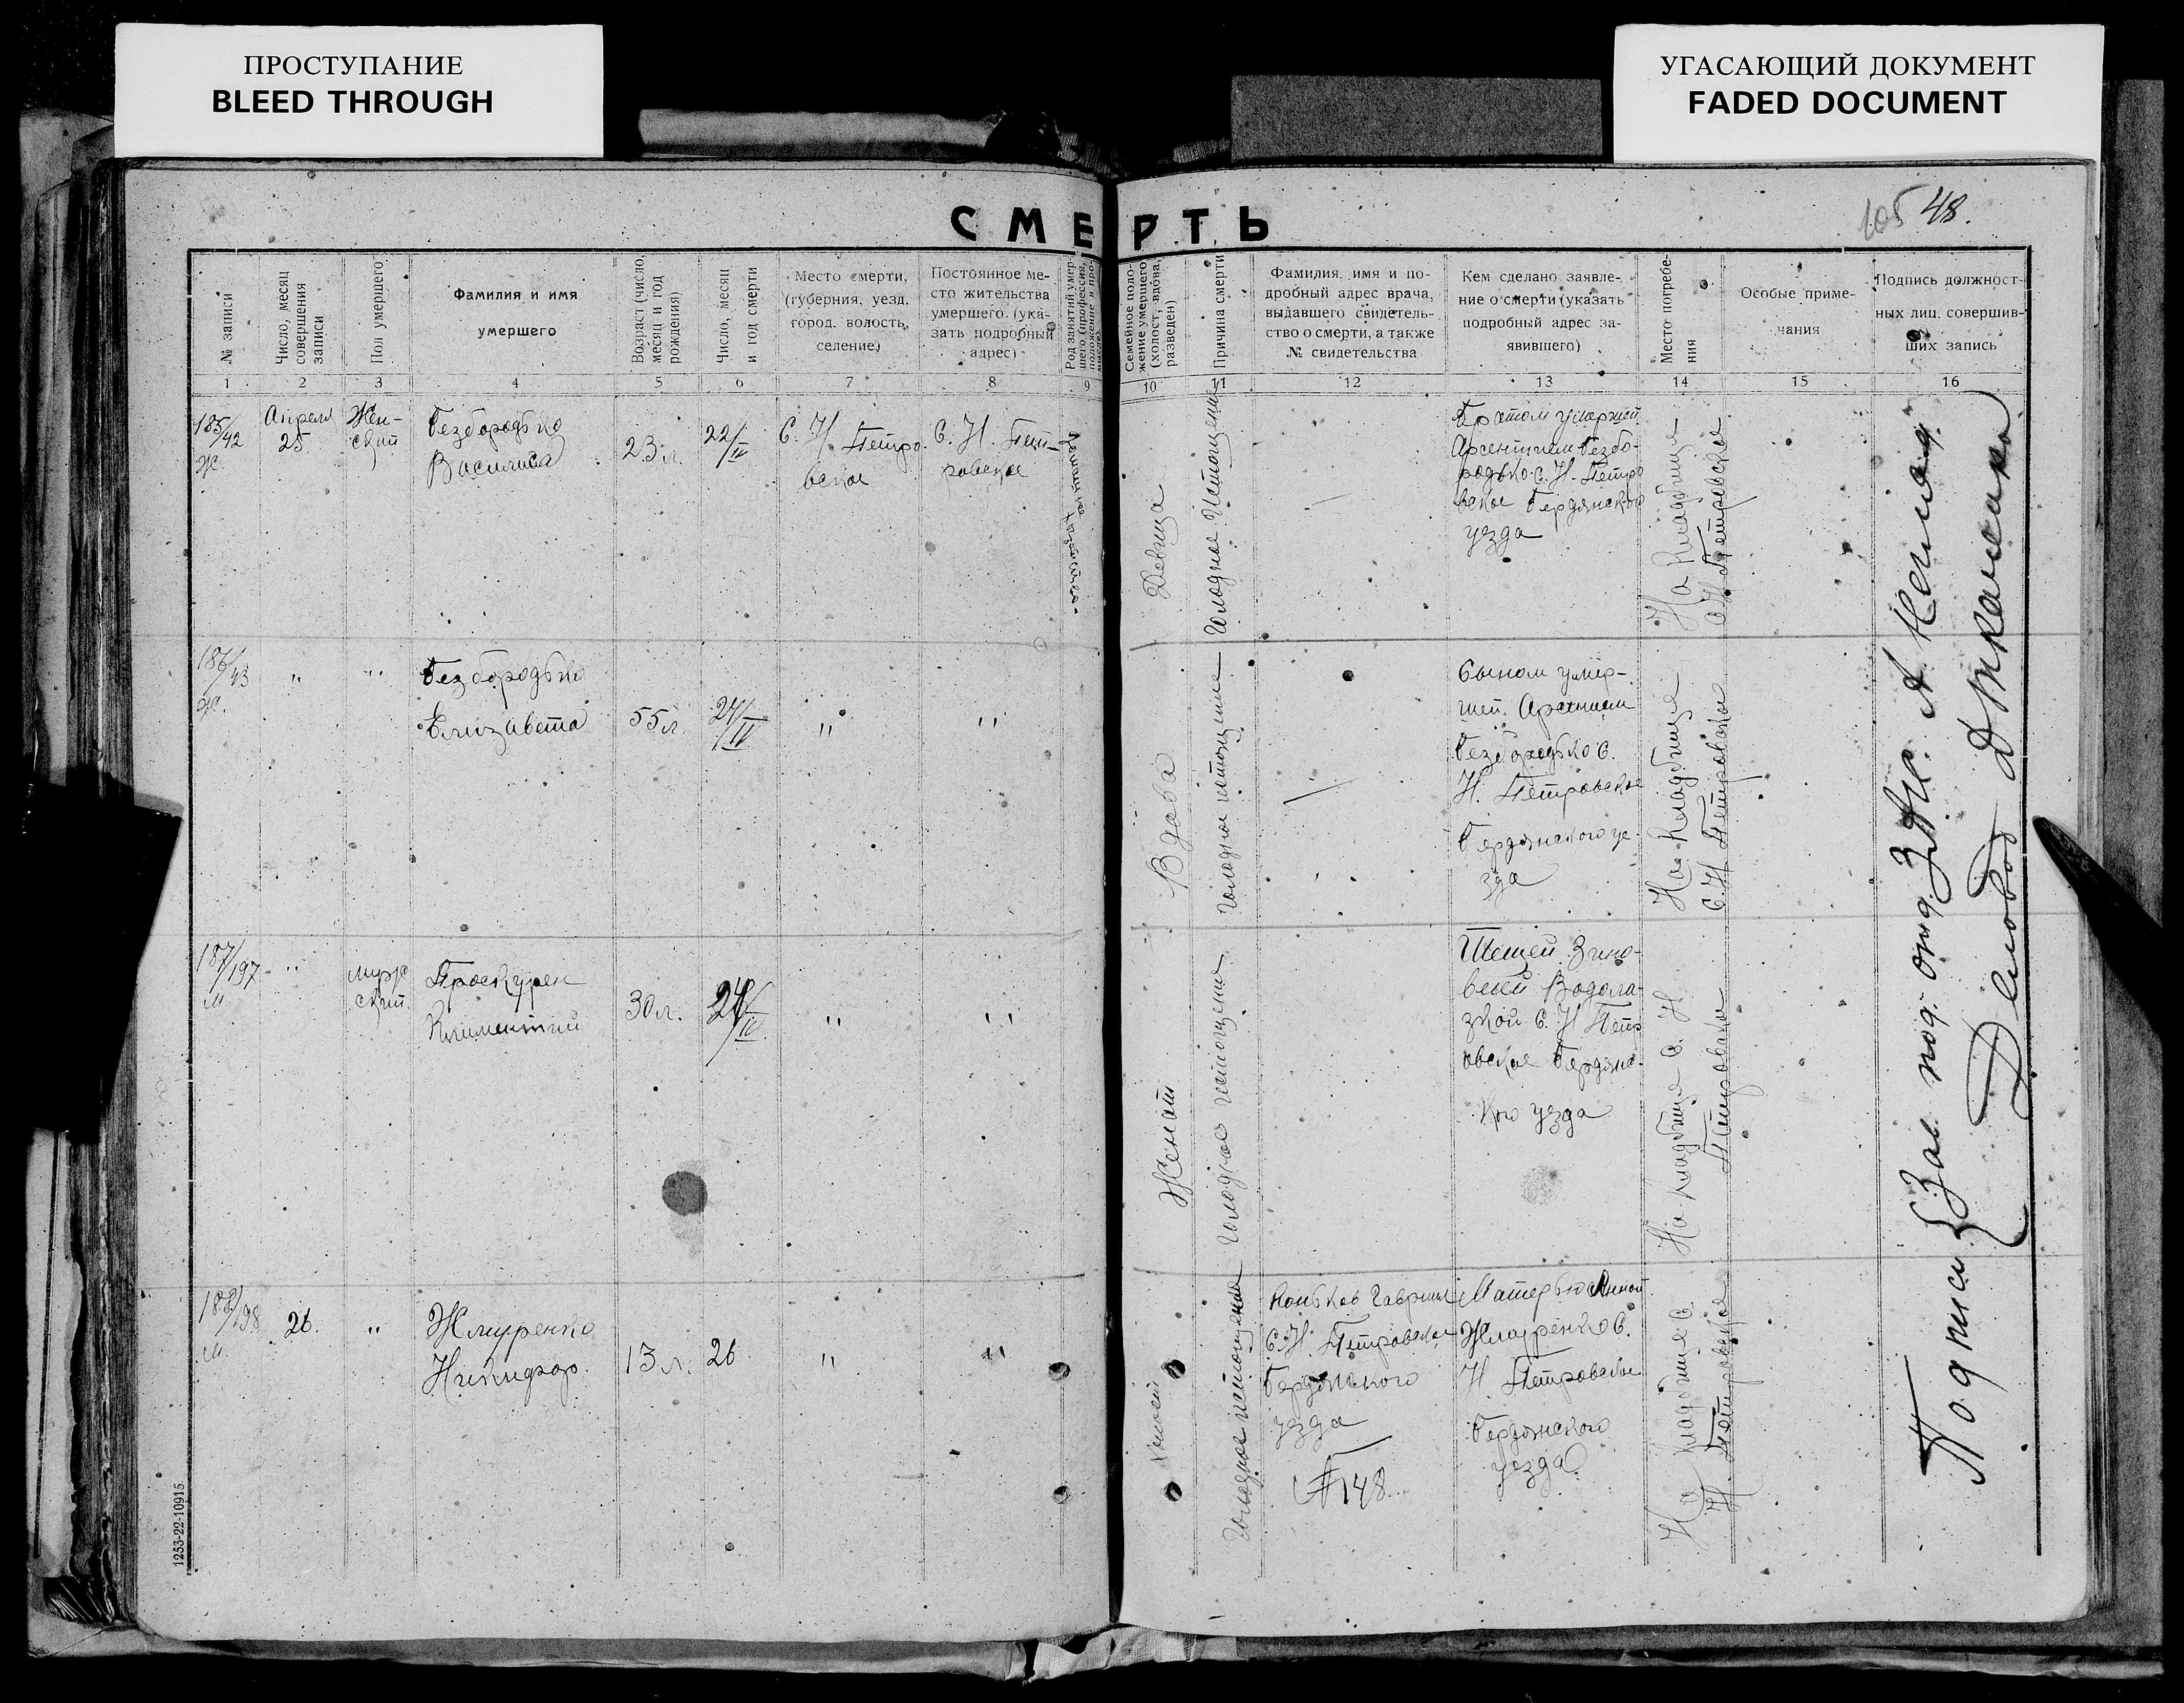 ПРОСТУПАНИЕ
BLEED THROUGH
УГАСАЮЩИЙ ДОКУМЕНТ
FADED DOCUMENT
105 48.
СМЕРТЬ
№ записи
Число, месяц
совершения
записи
Пол умершего
Фамилия и имя
умершего
Возраст (число,
месяц и год
рождения)
Число, месяц
и год смерти
Место смерти,
(губерния, уезд,
город, волость,
селение)
Постоянное ме-
сто жительства
умершего (ука-
зать подробный
адрес)
Род занятий умер-
шего (профессия,
положение в про-
мысле)
Семейное поло-
жение умершего
(холост, вдова,
разведен)
Причина смерти
Фамилия, имя и по-
дробный адрес врача,
выдавшего свидетель-
ство о смерти, а также
№ свидетельства
Кем сделано заявле-
ние о смерти (указать
подробный адрес за-
явившего)
Место погребе-
ния
Особые приме-
чания
Подпись должност-
ных лиц, совершив-
ших запись
1 2 3 4 5 6 7 8 9 10 11 12 13 14 15 16
185/42
ж.
Апреля
25
Жен-
ский
Безбородько
Василиса
23 л.
22/IV
С. Н. Петро
вское
С. Н. Пет-
ровское
Девица
Голодное Истощение
Братом умершей
Арсентием Безбо-
родько С. Н. Петро
вское Бердянского
уезда
На Кладбище
С. Н. Петровское
186/43
ж.
" "
Безбородько
Елизавета
55 л.
24/IV
" "
Вдова
Голодное истощение
Сыном умер-
шей Арсением
Безбородько С.
Н. Петровское
Бердянского уе-
зда
На Кладбище
С. Н. Петровское
187/197
м
"
муж
ский
Проскурен
Климентий
30 л.
24/IV
" "
Женат
Голодное истощение
Тещей Зино-
вией Водола-
зкой С. Н. Петр
овское Бердянс-
кого уезда
На кладбище С. Н
Петровское
188/198
м.
26.
"
Жмуренко
Никифор
13 л.
26
" "
Голодное истощение
Гаврил
С. Н. Петровское
Бердянского
узда
№ 148
Матерью Анной
Жмуренко С.
Н. Петровское
Бердянского
уезда
На кладбище С.
Н. Петровское
Подписи { Зав. под. отд. ЗАГС.
1253-22-10915